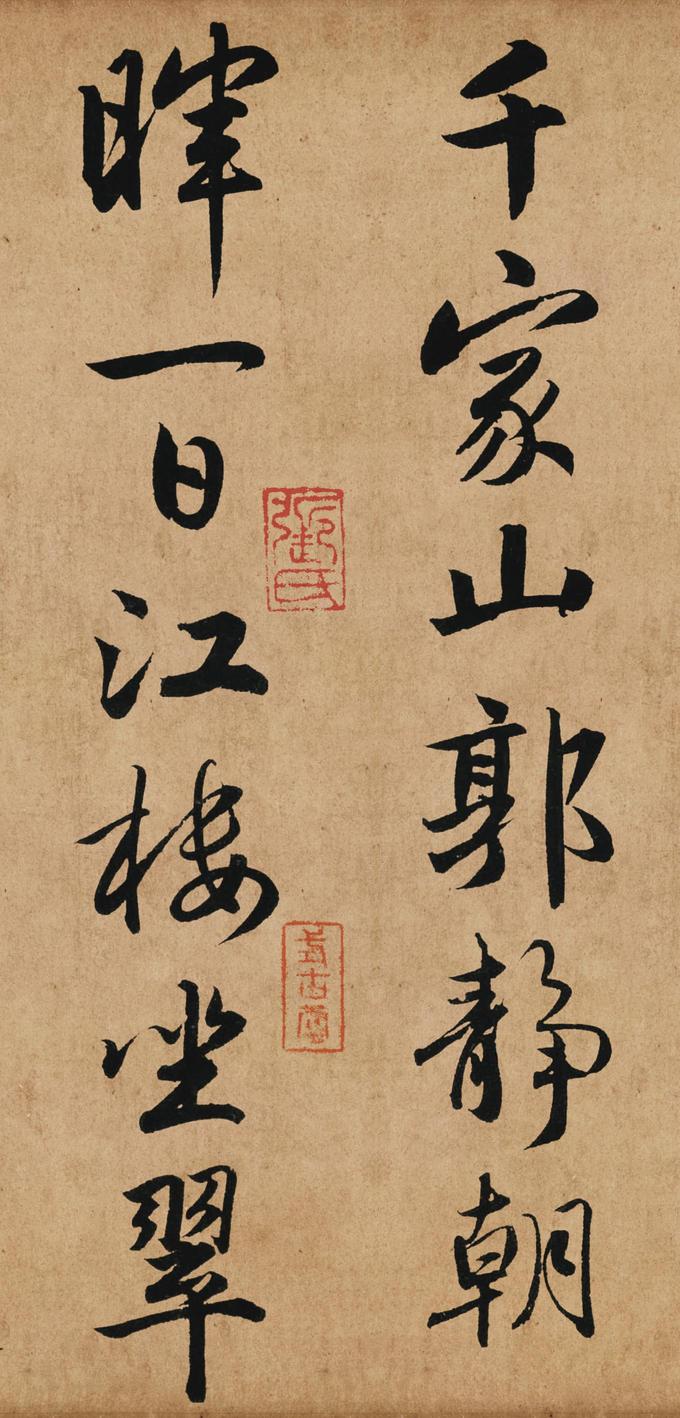 千家山郭静朝
暉一日江楼坐翠